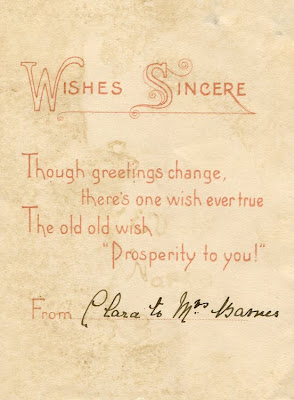 WISHES SINCERE
Though greetings change,
there's one wish ever true
The old old wish
"Prosperity to you!"
From Clara to Mrs Barnes